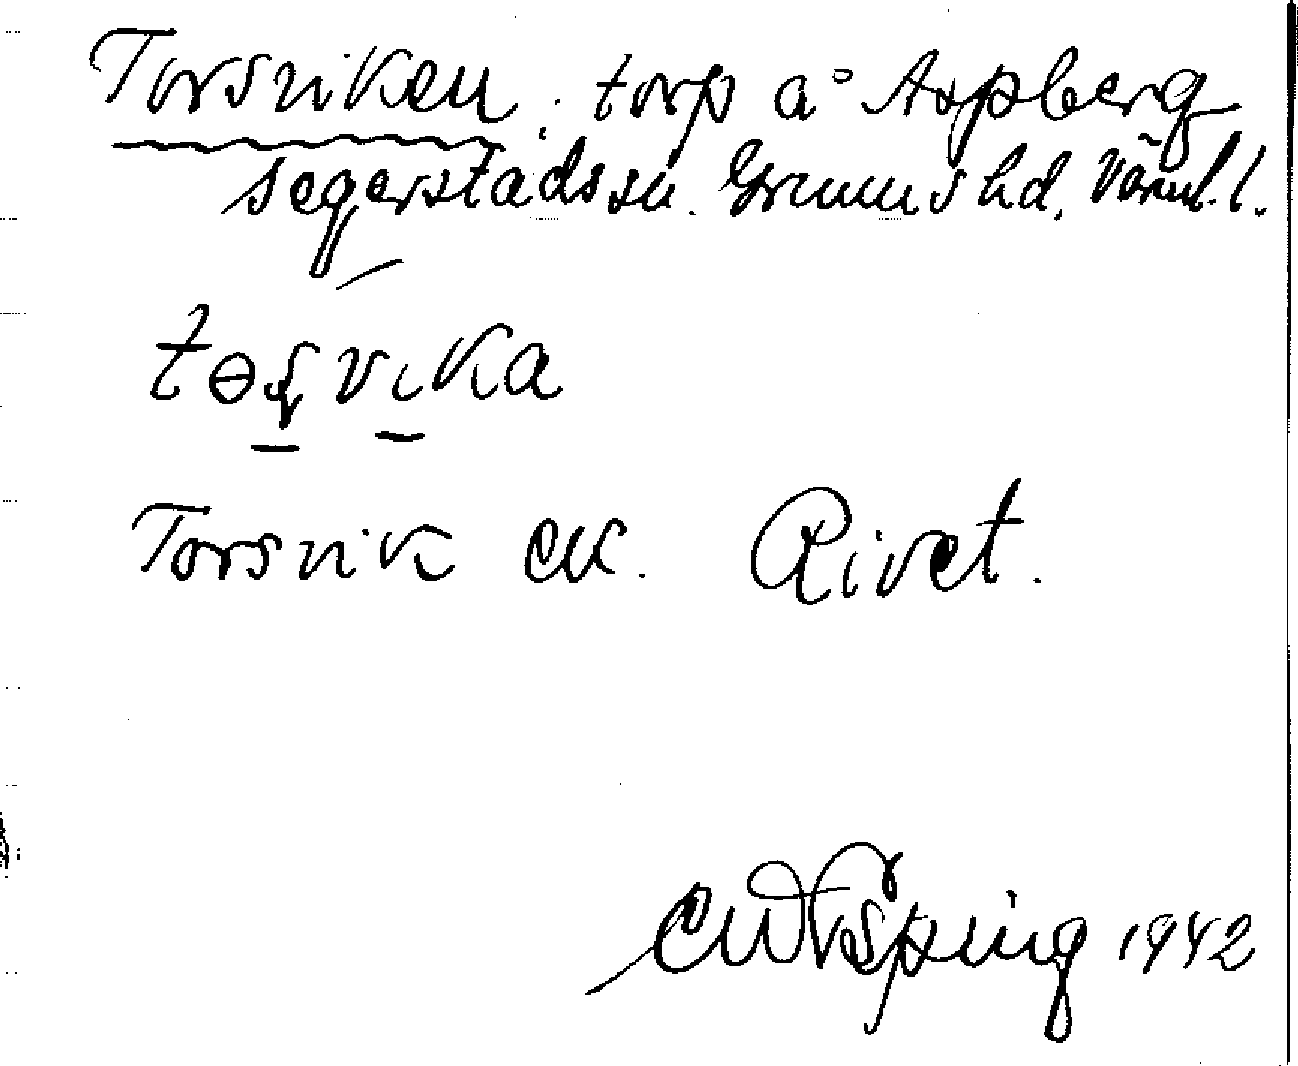 Torsviken, torp å Aspberg
Segerstads sn. Grums hd, Värml. l.
tɵʂvika
Torsvik ek. Rivet.
1942